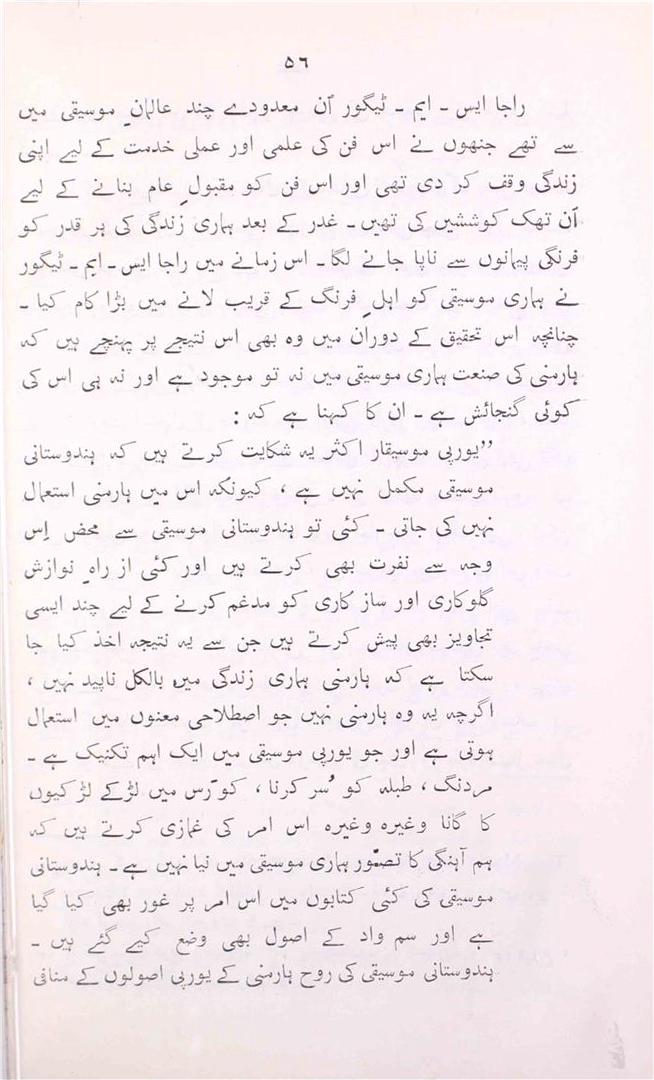 ٥٦
راجا ایس ـ ایم ـ ٹیگور اُن معدودے چند عالمانِ موسیقی میں
سے تھے جنھوں نے اس فن کی علمی اور عملی خدمت کے لیے اپنی
زندگی وقف کر دی تھی اور اس فن کو مقبولِ عام بنانے کے لیے
اَن تھک کوششیں کی تھیں ـ غدر کے بعد ہماری زندگی کی ہر قدر کو
فرنگی پیمانوں سے ناپا جانے لگا ـ اس زمانے میں راجا ایس ـ ایم ـ ٹیگور
نے ہماری موسیقی کو اہلِ فرنگ کے قریب لانے میں بڑا کام کیا ـ
چنانچہ اس تحقیق کے دوران میں وہ بھی اس نتیجے پر پہنچے ہیں کہ
ہارمنی کی صنعت ہماری موسیقی میں نہ تو موجود ہے اور نہ ہی اس کی
کوئی گنجائش ہے ـ ان کا کہنا ہے کہ :
”یورپی موسیقار اکثر یہ شکایت کرتے ہیں کہ ہندوستانی
موسیقی مکمل نہیں ہے ، کیونکہ اس میں ہارمنی استعمال
نہیں کی جاتی ـ کئی تو ہندوستانی موسیقی سے محض اِس
وجہ سے نفرت بھی کرتے ہیں اور کئی از راہِ نوازش
گلوکاری اور ساز کاری کو مدغم کرنے کے لیے چند ایسی
تجاویز بھی پیش کرتے ہیں جن سے یہ نتیجہ اخذ کیا جا
سکتا ہے کہ ہارمنی ہماری زندگی میں بالکل ناپید نہیں ،
اگرچہ یہ وہ ہارمنی نہیں جو اصطلاحی معنوں میں استعمال
ہوتی ہے اور جو یورپی موسیقی میں ایک اہم تکنیک ہے ـ
مردنگ ، طبلہ کو سُر کرنا ، کورَس میں لڑکے لڑکیوں
کا گانا وغیرہ وغیرہ اس امر کی غمازی کرتے ہیں کہ
ہم آہنگی کا تصوّر ہماری موسیقی میں نیا نہیں ہے ـ ہندوستانی
موسیقی کی کئی کتابوں میں اس امر پر غور بھی کیا گیا
ہے اور سم واد کے اصول بھی وضع کیے گئے ہیں ـ
ہندوستانی موسیقی کی روح ہارمنی کے یورپی اصولوں کے منافی